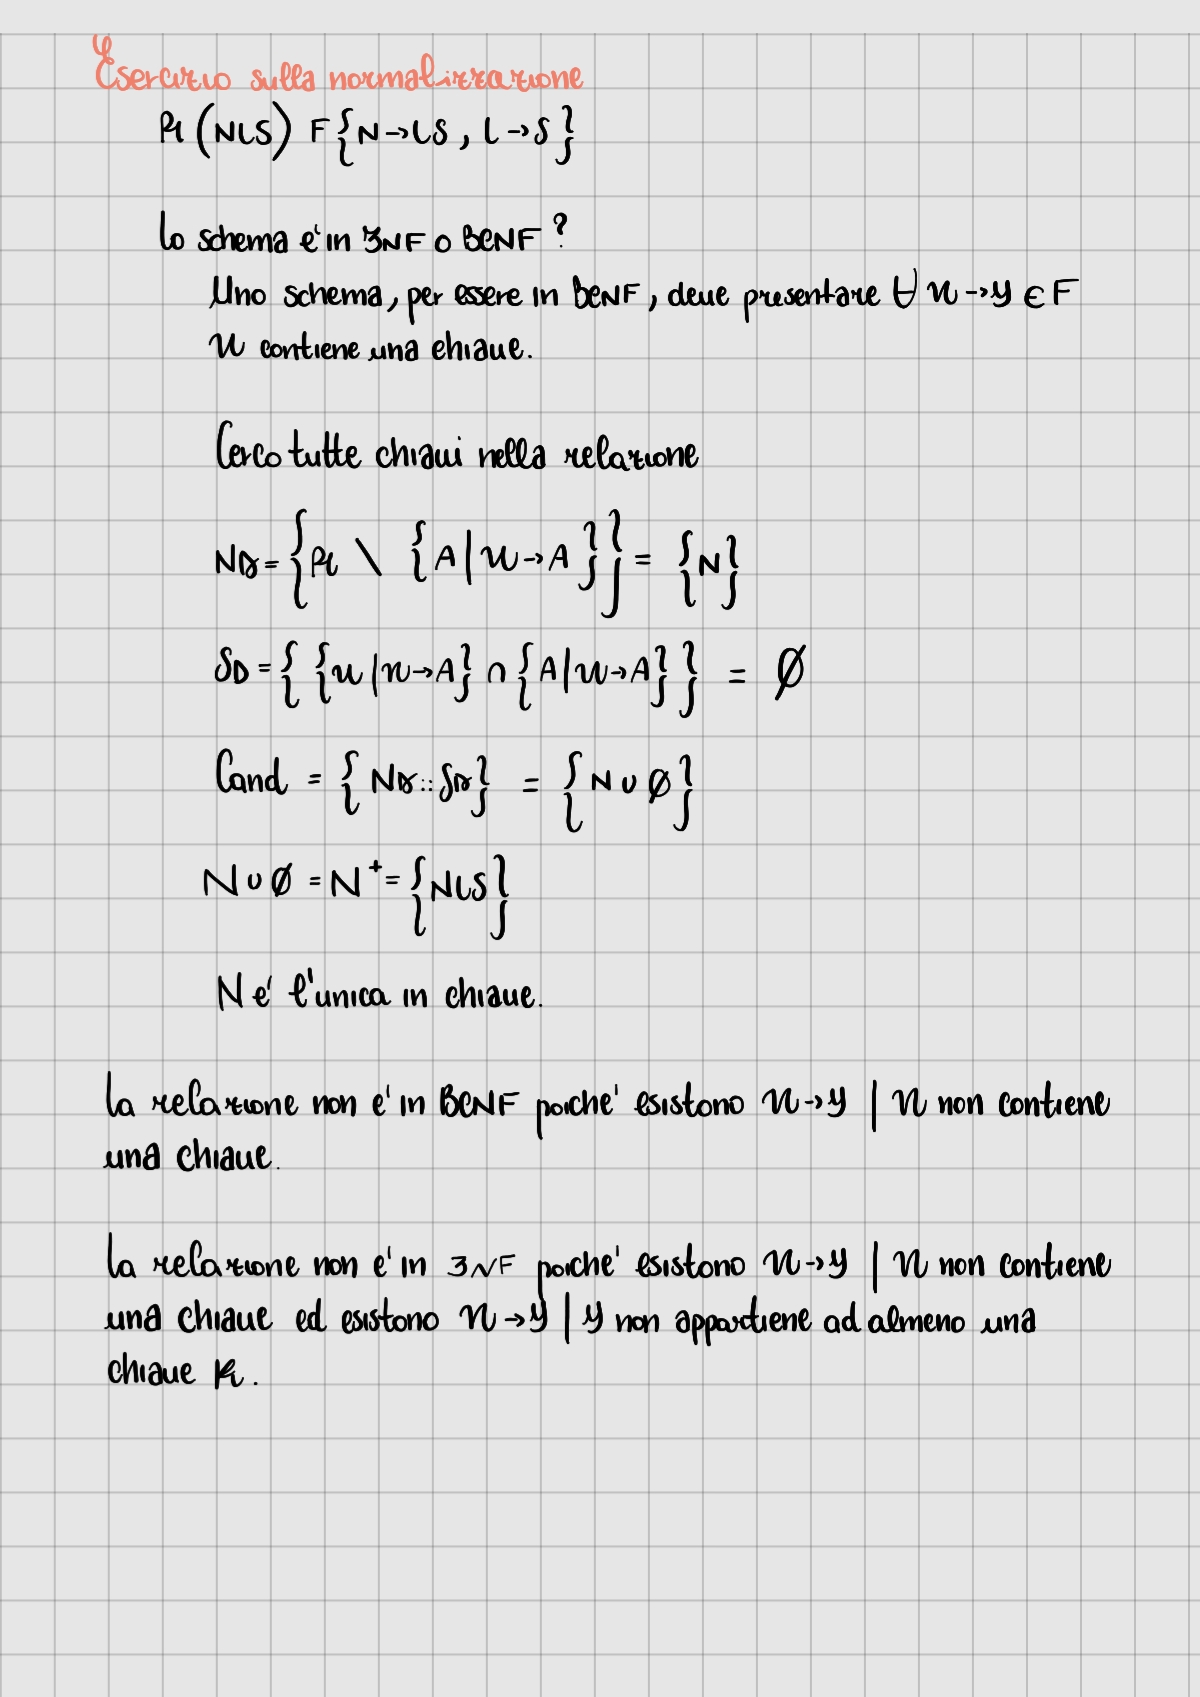 Esercizio sulla normalizzazione
R (NLS) F{N→LS, L→S}
Lo schema e' in 3NF o BCNF?
Uno schema, per essere in BCNF, deve presentare ∀ X→Y ∈ F
X contiene una chiave.
Cerco tutte chiavi nella relazione
ND = {R \ {A | X→A}} = {N}
SD = {{X | X→A} ∩ {A | X→A}} = ∅
Cand = {ND :: SD} = {N ∪ ∅}
N ∪ ∅ = N⁺ = {NLS}
N e' l'unica in chiave.
La relazione non e' in BCNF poiche' esistono X→Y | X non contiene
una chiave.
La relazione non e' in 3NF poiche' esistono X→Y | X non contiene
una chiave ed esistono X→Y | Y non appartiene ad almeno una
chiave K.